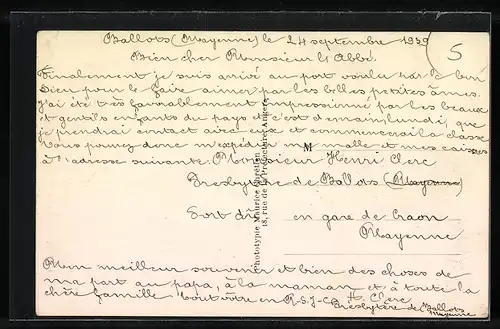 Ballots (Mayenne) le 24 septembre 1939
5
Bien cher Monsieur l'Abbé.
Finalement je suis arrivé au port voulu par le bon
Dieu pour le faire aimer par les belles petites âmes.
J'ai été très favorablement impressionné par les beaux
et gentils enfants du pays et c'est demain, lundi, que
je prendrai contact avec eux et commencerai la classe
Vous pouvez donc m'expédier ma malle et mes caisses
à l'adresse suivante. Monsieur Henri Clerc
Presbytère de Ballots (Mayenne)
Port dû en gare de Craon
Mayenne
Mon meilleur souvenir et bien des choses de
ma part au papa, à la maman et à toute la
chère famille Tout vôtre en N.S.J-C. H. Clerc
Presbytère de Ballots
Mayenne
M
Phototypie Maurice Chrétien
18, rue de la Préfecture, Angers